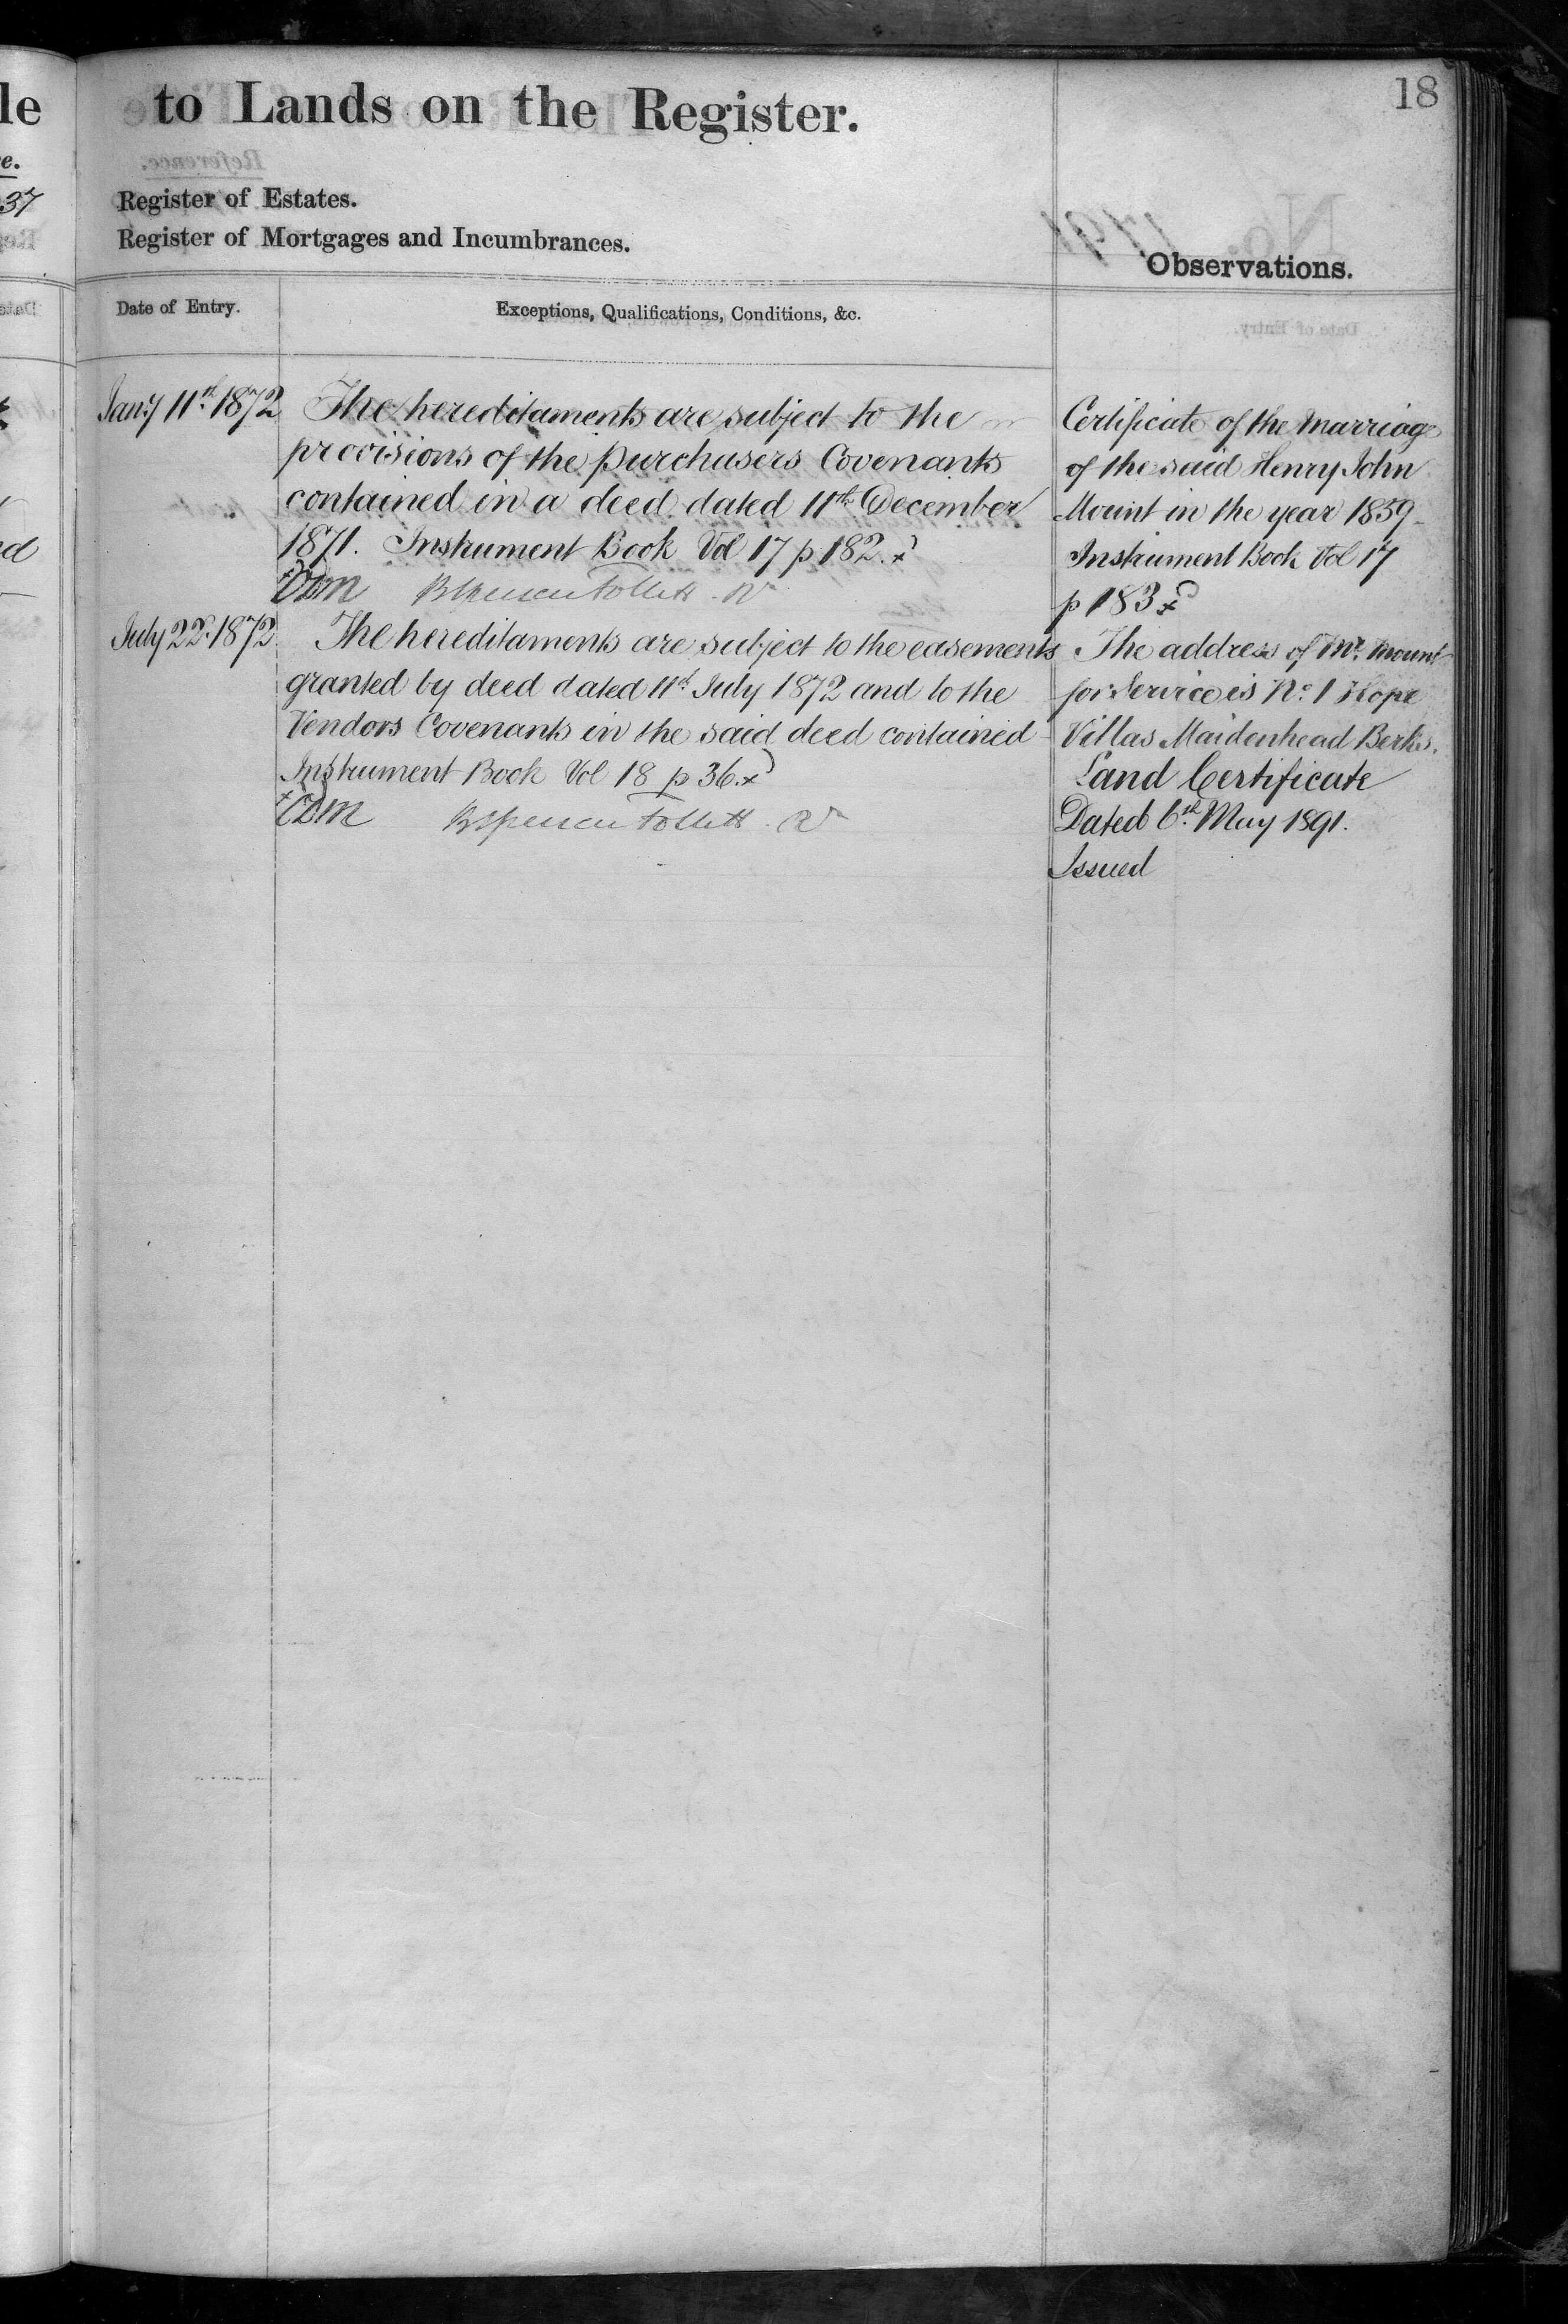 18
to Lands on the Register.
Register of Estates.
Register of Mortgages and Incumbrances.
Observations.
Date of Entry.
Exceptions, Qualifications, Conditions, &c.
Jany 11th 1872
The hereditaments are subject to the
provisions of the purchasers Covenants
contained in a deed dated 11th December
1871. Instrument Book Vol 17 p 182.
July 22d 1872
The hereditaments are subject to the easements
granted by deed dated 11th July 1872 and to the
Vendors Covenants in the said deed contained
Instrument Book Vol 18 p 36.
Certificate of the Marriage
of the said Henry John
Mount in the year 1859
Instrument Book Vol 17
p 183
The address of Mr. Mount
for Service is No. 1 Hope
Villas Maidenhead Berks.
Land Certificate
Dated 6th May 1891.
Issued